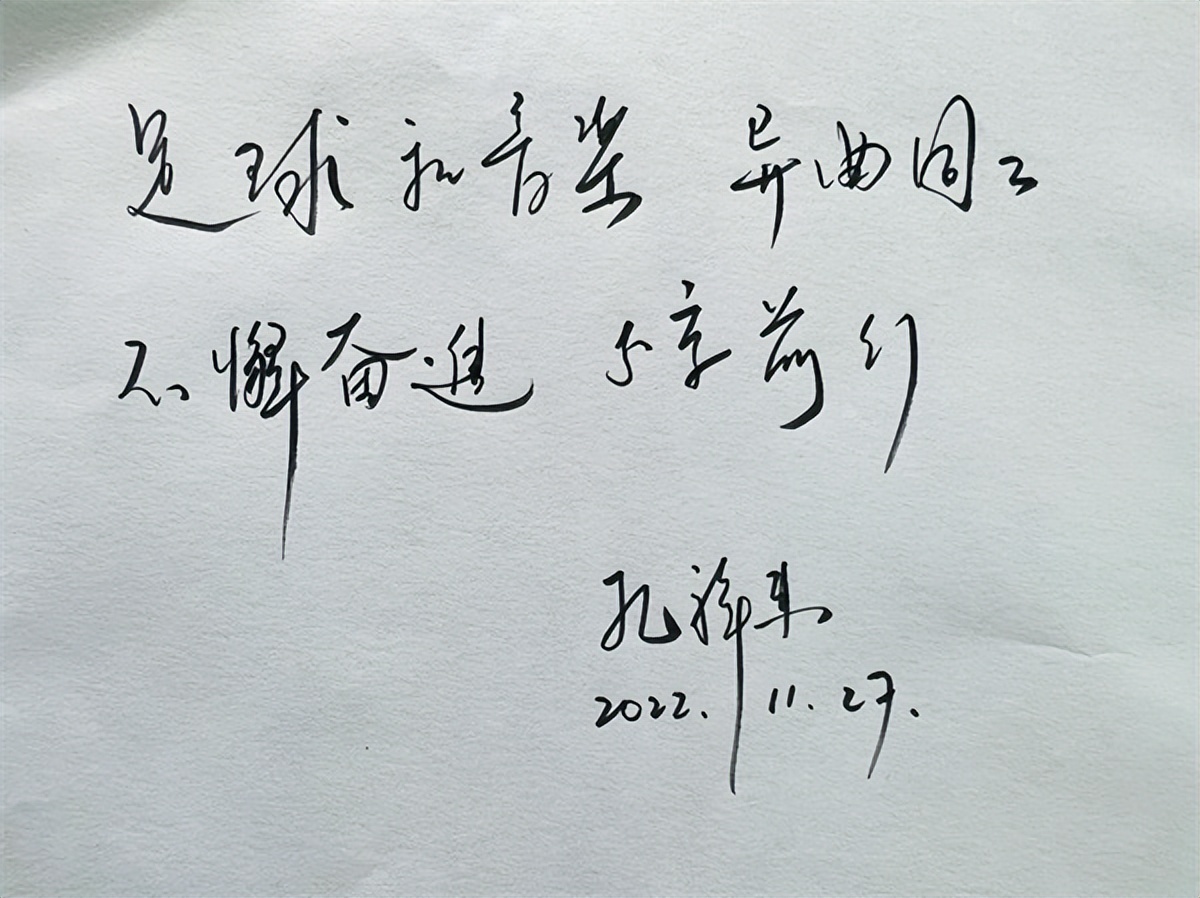 足球和音乐 异曲同工
不懈奋进 砥砺前行
孔祥东
2022.11.27.